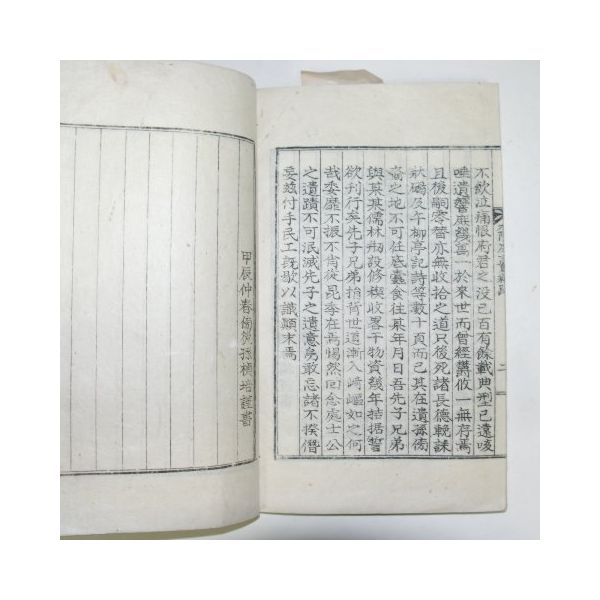 不飮泣痛恨府君之没已百有餘載典型已遠咳
唾遺響庶幾焉一於來世而曾經鬱攸一無存焉
且後嗣零替亦無收拾之道只後死諸長德輓誄
狀碣及午柳亭記詩等數十頁而已其在遺孫傍
裔之地不可任底蠹食往某年月日吾先子兄弟
與某某儒林刱設修稧收畧干物資幾年拮据誓
欲刊行矣先子兄弟揹背世道漸入崎嶇如之何
哉委靡不振不肯從昆季在焉惕然回念處士公
之遺蹟不可泯滅先子之遺意焉敢忘諸不揆僭
妄玆付手民工旣歇以識顚末焉
甲辰仲春傍孫楨培謹書